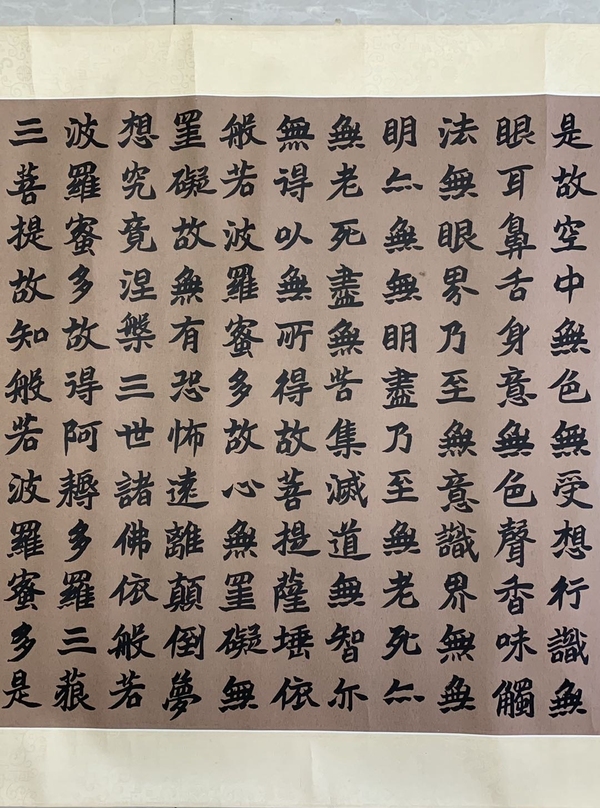 是故空中無色無受想行識無
眼耳鼻舌身意無色聲香味觸
法無眼界乃至無意識界無無
明亦無無明盡乃至無老死亦
無老死盡無苦集滅道無智亦
無得以無所得故菩提薩埵依
般若波羅蜜多故心無罣礙無
罣礙故無有恐怖遠離顛倒夢
想究竟涅槃三世諸佛依般若
波羅蜜多故得阿耨多羅三藐
三菩提故知般若波羅蜜多是